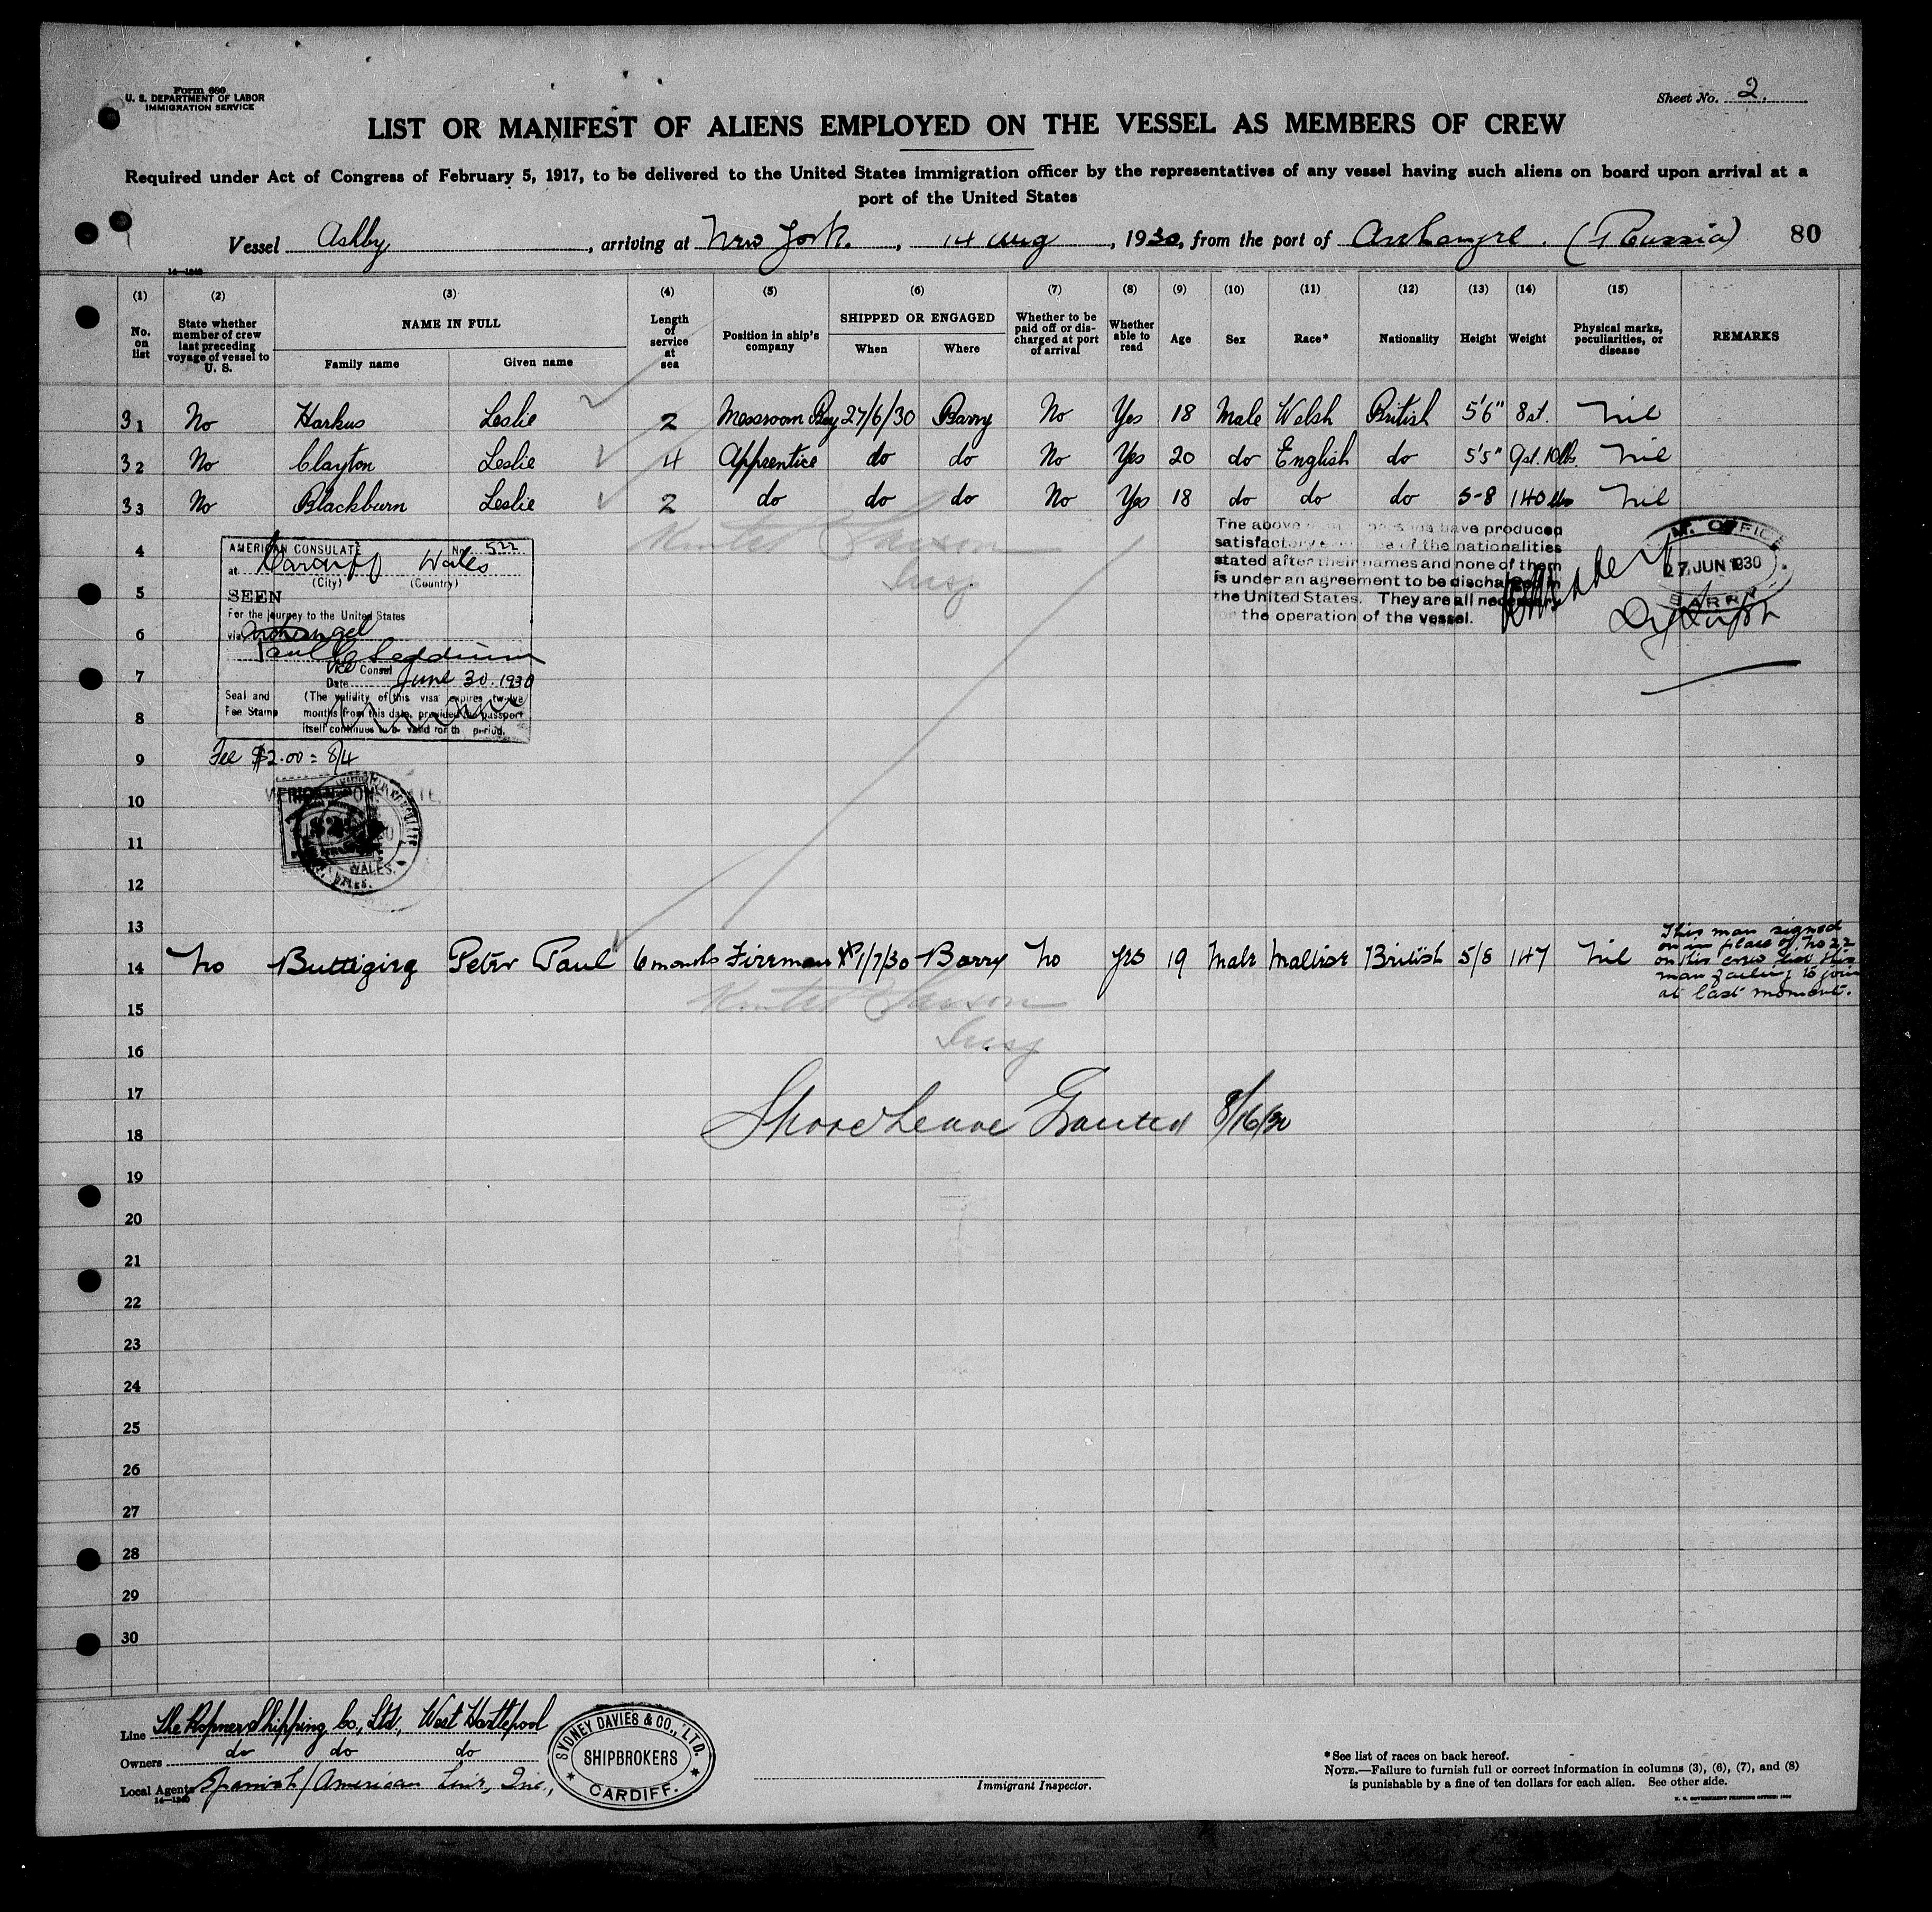 Form 680
U. S. DEPARTMENT OF LABOR
IMMIGRATION SERVICE
Sheet No. 2.
LIST OR MANIFEST OF ALIENS EMPLOYED ON THE VESSEL AS MEMBERS OF CREW
Required under Act of Congress of February 5, 1917, to be delivered to the United States immigration officer by the representatives of any vessel having such aliens on board upon arrival at a
port of the United States
Vessel Ashby, arriving at New York, 14 Aug, 1930, from the port of Archangel. (Russia) 80
14—1240
(1) (2) (3) (4) (5) (6) (7) (8) (9) (10) (11) (12) (13) (14) (15)
No. on list
State whether member of crew last preceding voyage of vessel to U. S.
NAME IN FULL
Family name Given name
Length of service at sea
Position in ship's company
SHIPPED OR ENGAGED
When Where
Whether to be paid off or discharged at port of arrival
Whether able to read
Age Sex Race* Nationality Height Weight
Physical marks, peculiarities, or disease
REMARKS
31 No Harkus Leslie 2 Messroom Boy 27/6/30 Barry No Yes 18 Male Welsh British 5'6" 8st. Nil
32 No Clayton Leslie 4 Apprentice do do No Yes 20 do English do 5'5" 9st. 10lbs. Nil
33 No Blackburn Leslie 2 do do do No Yes 18 do do do 5-8 140 lbs Nil
4
5
6
7
8
9
10
11
12
13
AMERICAN CONSULATE No. 522
at Cardiff Wales
(City) (Country)
SEEN
For the journey to the United States
via Archangel
Vice Consul
Date June 30. 1930
Seal and Fee Stamp
(The validity of this visa expires twelve
months from this date, provided the passport
itself continues to be valid for th period.
Fee $2.00 = 8/4
WALES.
The above have produced
satisfactory of the nationalities
stated after their names and none of them
is under an agreement to be discharged in
the United States. They are all necessary
for the operation of the vessel.
M. OFFICE
27 JUN 1930
BARRY
Insp
14 No Buttigieg Peter Paul 6 months Fireman 1/7/30 Barry No Yes 19 Male Maltese British 5/8 147 Nil
This man signed
on in place of No 22
on this crew list this
man failing to join
at last moment.
Insp
15
16
17
18
Shore Leave Granted 8/16/30
19
20
21
22
23
24
25
26
27
28
29
30
Line The Ropner Shipping Co., Ltd., West Hartlepool
Owners do do do
Local Agents Spanish/American Line, Inc.,
14—1240
SYDNEY DAVIES & CO., LTD.
SHIPBROKERS
CARDIFF.
Immigrant Inspector.
*See list of races on back hereof.
NOTE.—Failure to furnish full or correct information in columns (3), (6), (7), and (8)
is punishable by a fine of ten dollars for each alien. See other side.